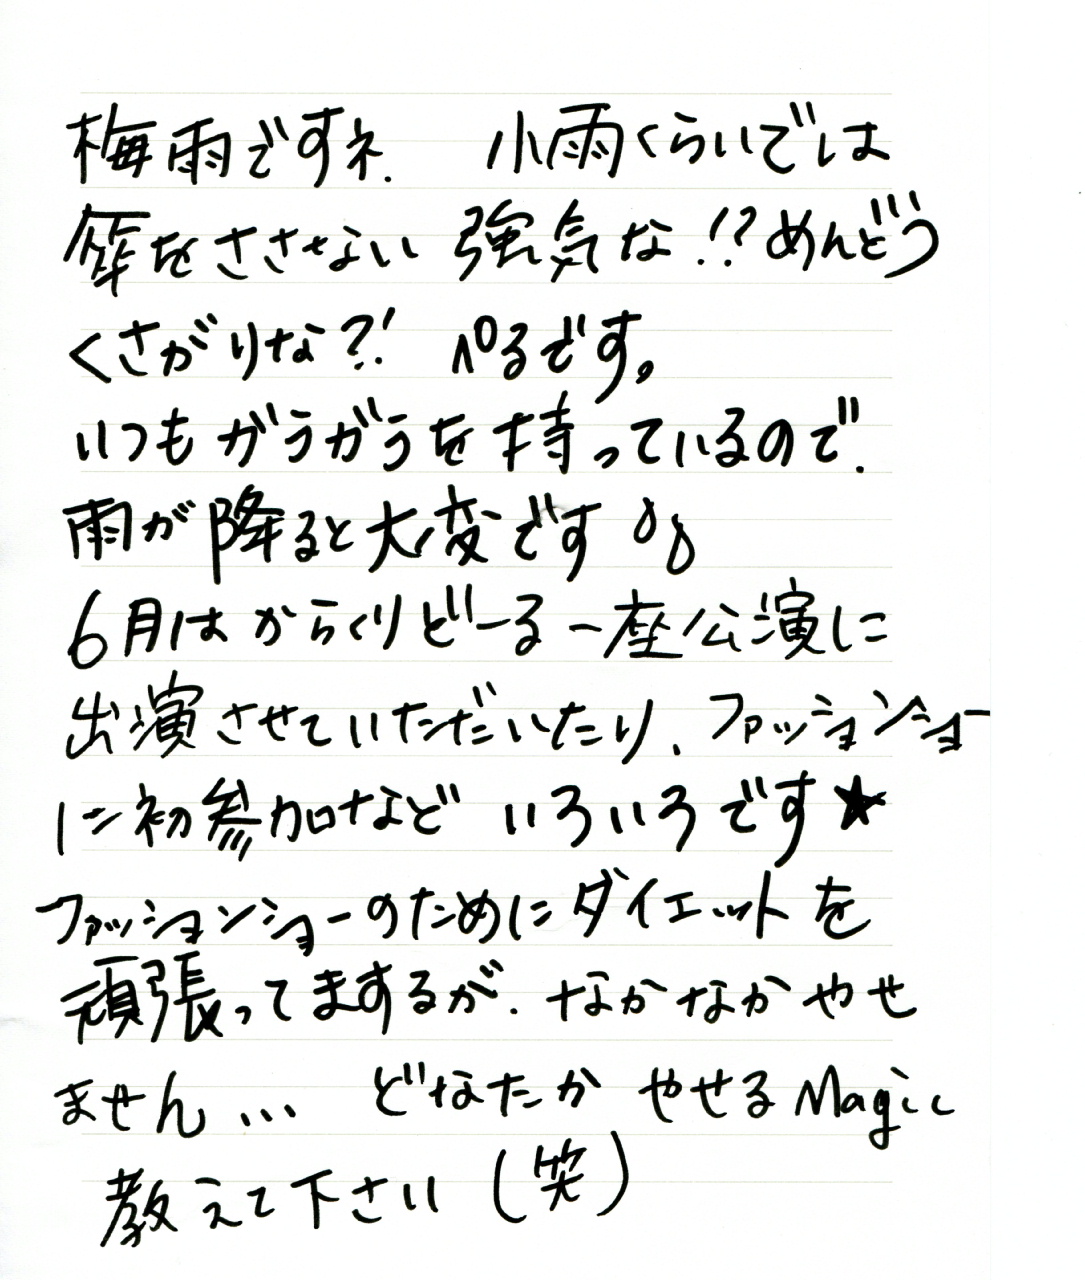 梅雨ですネ. 小雨くらいでは
傘をささない 強気な!?めんどう
くさがりな?! ぺるです。
いつもがうがうを持っているので.
雨が降ると大変です
6月はからくりどーる一座公演に
出演させていただいたり、ファッションショー
に初参加など いろいろです★
ファッションショーのためにダイエットを
頑張ってまするが、なかなかやせ
ません… どなたか やせるMagic
教えて下さい(笑)